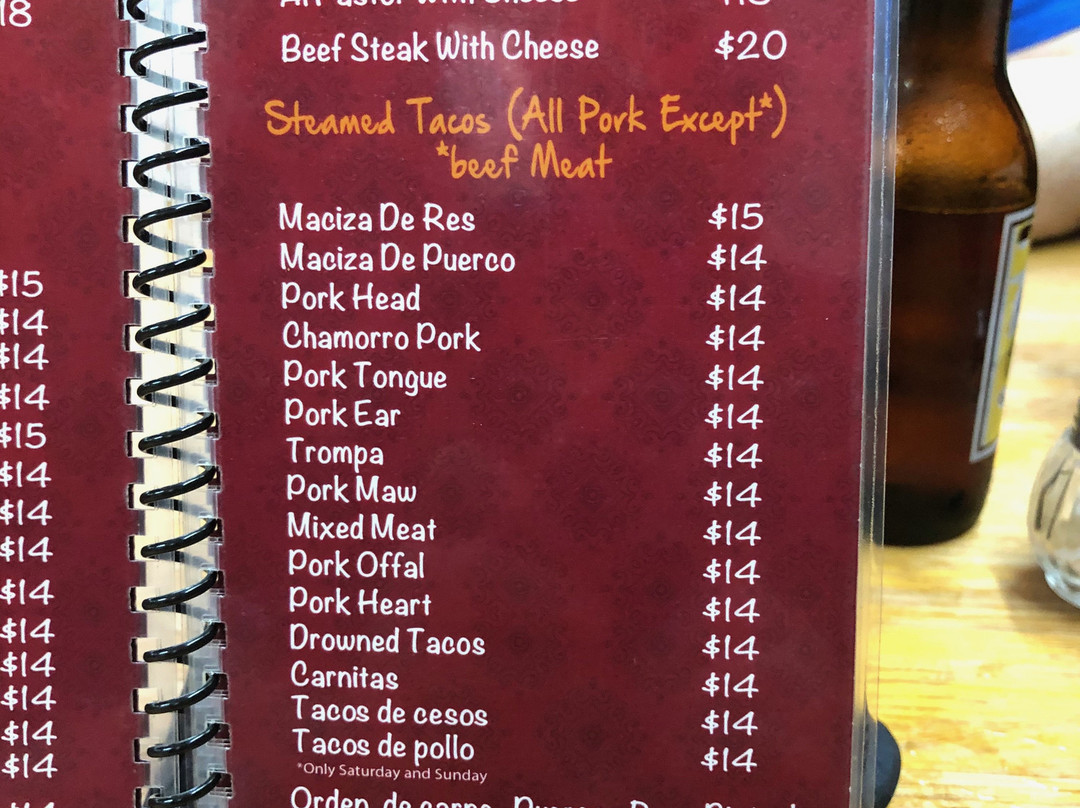 18
$15
$14
$14
$14
$15
$14
$14
$14
$14
$14
$14
$14
$14
$14
With Cheese
Beef Steak With Cheese $20
Steamed Tacos (All Pork Except*)
*beef Meat
Maciza De Res $15
Maciza De Puerco $14
Pork Head $14
Chamorro Pork $14
Pork Tongue $14
Pork Ear $14
Trompa $14
Pork Maw $14
Mixed Meat $14
Pork Offal $14
Pork Heart $14
Drowned Tacos $14
Carnitas $14
Tacos de cesos $14
Tacos de pollo $14
*Only Saturday and Sunday
Orden de carne